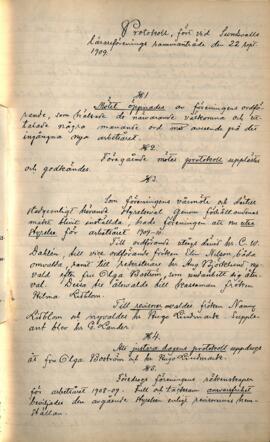 Protokoll, fört vid Sundsvalls
lärareförenings sammanträde den 22 sept.
1909.
§ 1.
Mötet öppnades av föreningens ordfö-
rande, som hälsade de närvarande välkomna och ut-
talade några manande ord med avseende på det
ingångna nya arbetsåret.
§ 2.
Föregående mötes protokoll upplästes
och godkändes.
§ 3.
Som föreningens vårmöte och därtill
stadgenligt hörande styrelseval genom förhållandenas
makt blivit inställda, hade föreningen att nu utse
styrelse för arbetsåret 1909-10.
Till ordförande valdes därvid hr C. W.
Dahlén, till vice ordförande fröken Elin Nilson, båda
omvalda, samt till sekreterare hr Aug Sjödén, ny-
vald efter fru Olga Boström, som undanbett sig åter-
val. Dessa tre återvalde till kassaman fröken
Hilma Lidblom.
Till revisorer omvaldes fröken Nanny
Lidblom och nyvaldes hr Hugo Lindmark. Supple-
ant blev hr G. Lander.
§ 4.
Att justera dagens protokoll uppdrogs
åt fru Olga Boström och hr Hugo Lindmark.
§ 5.
Föredrogs föreningens räkenskaper
för arbetsåret 1908-09. Full och tacksam ansvarsfrihet
beviljades den avgående styrelsen enligt revisorernas hem-
ställan.